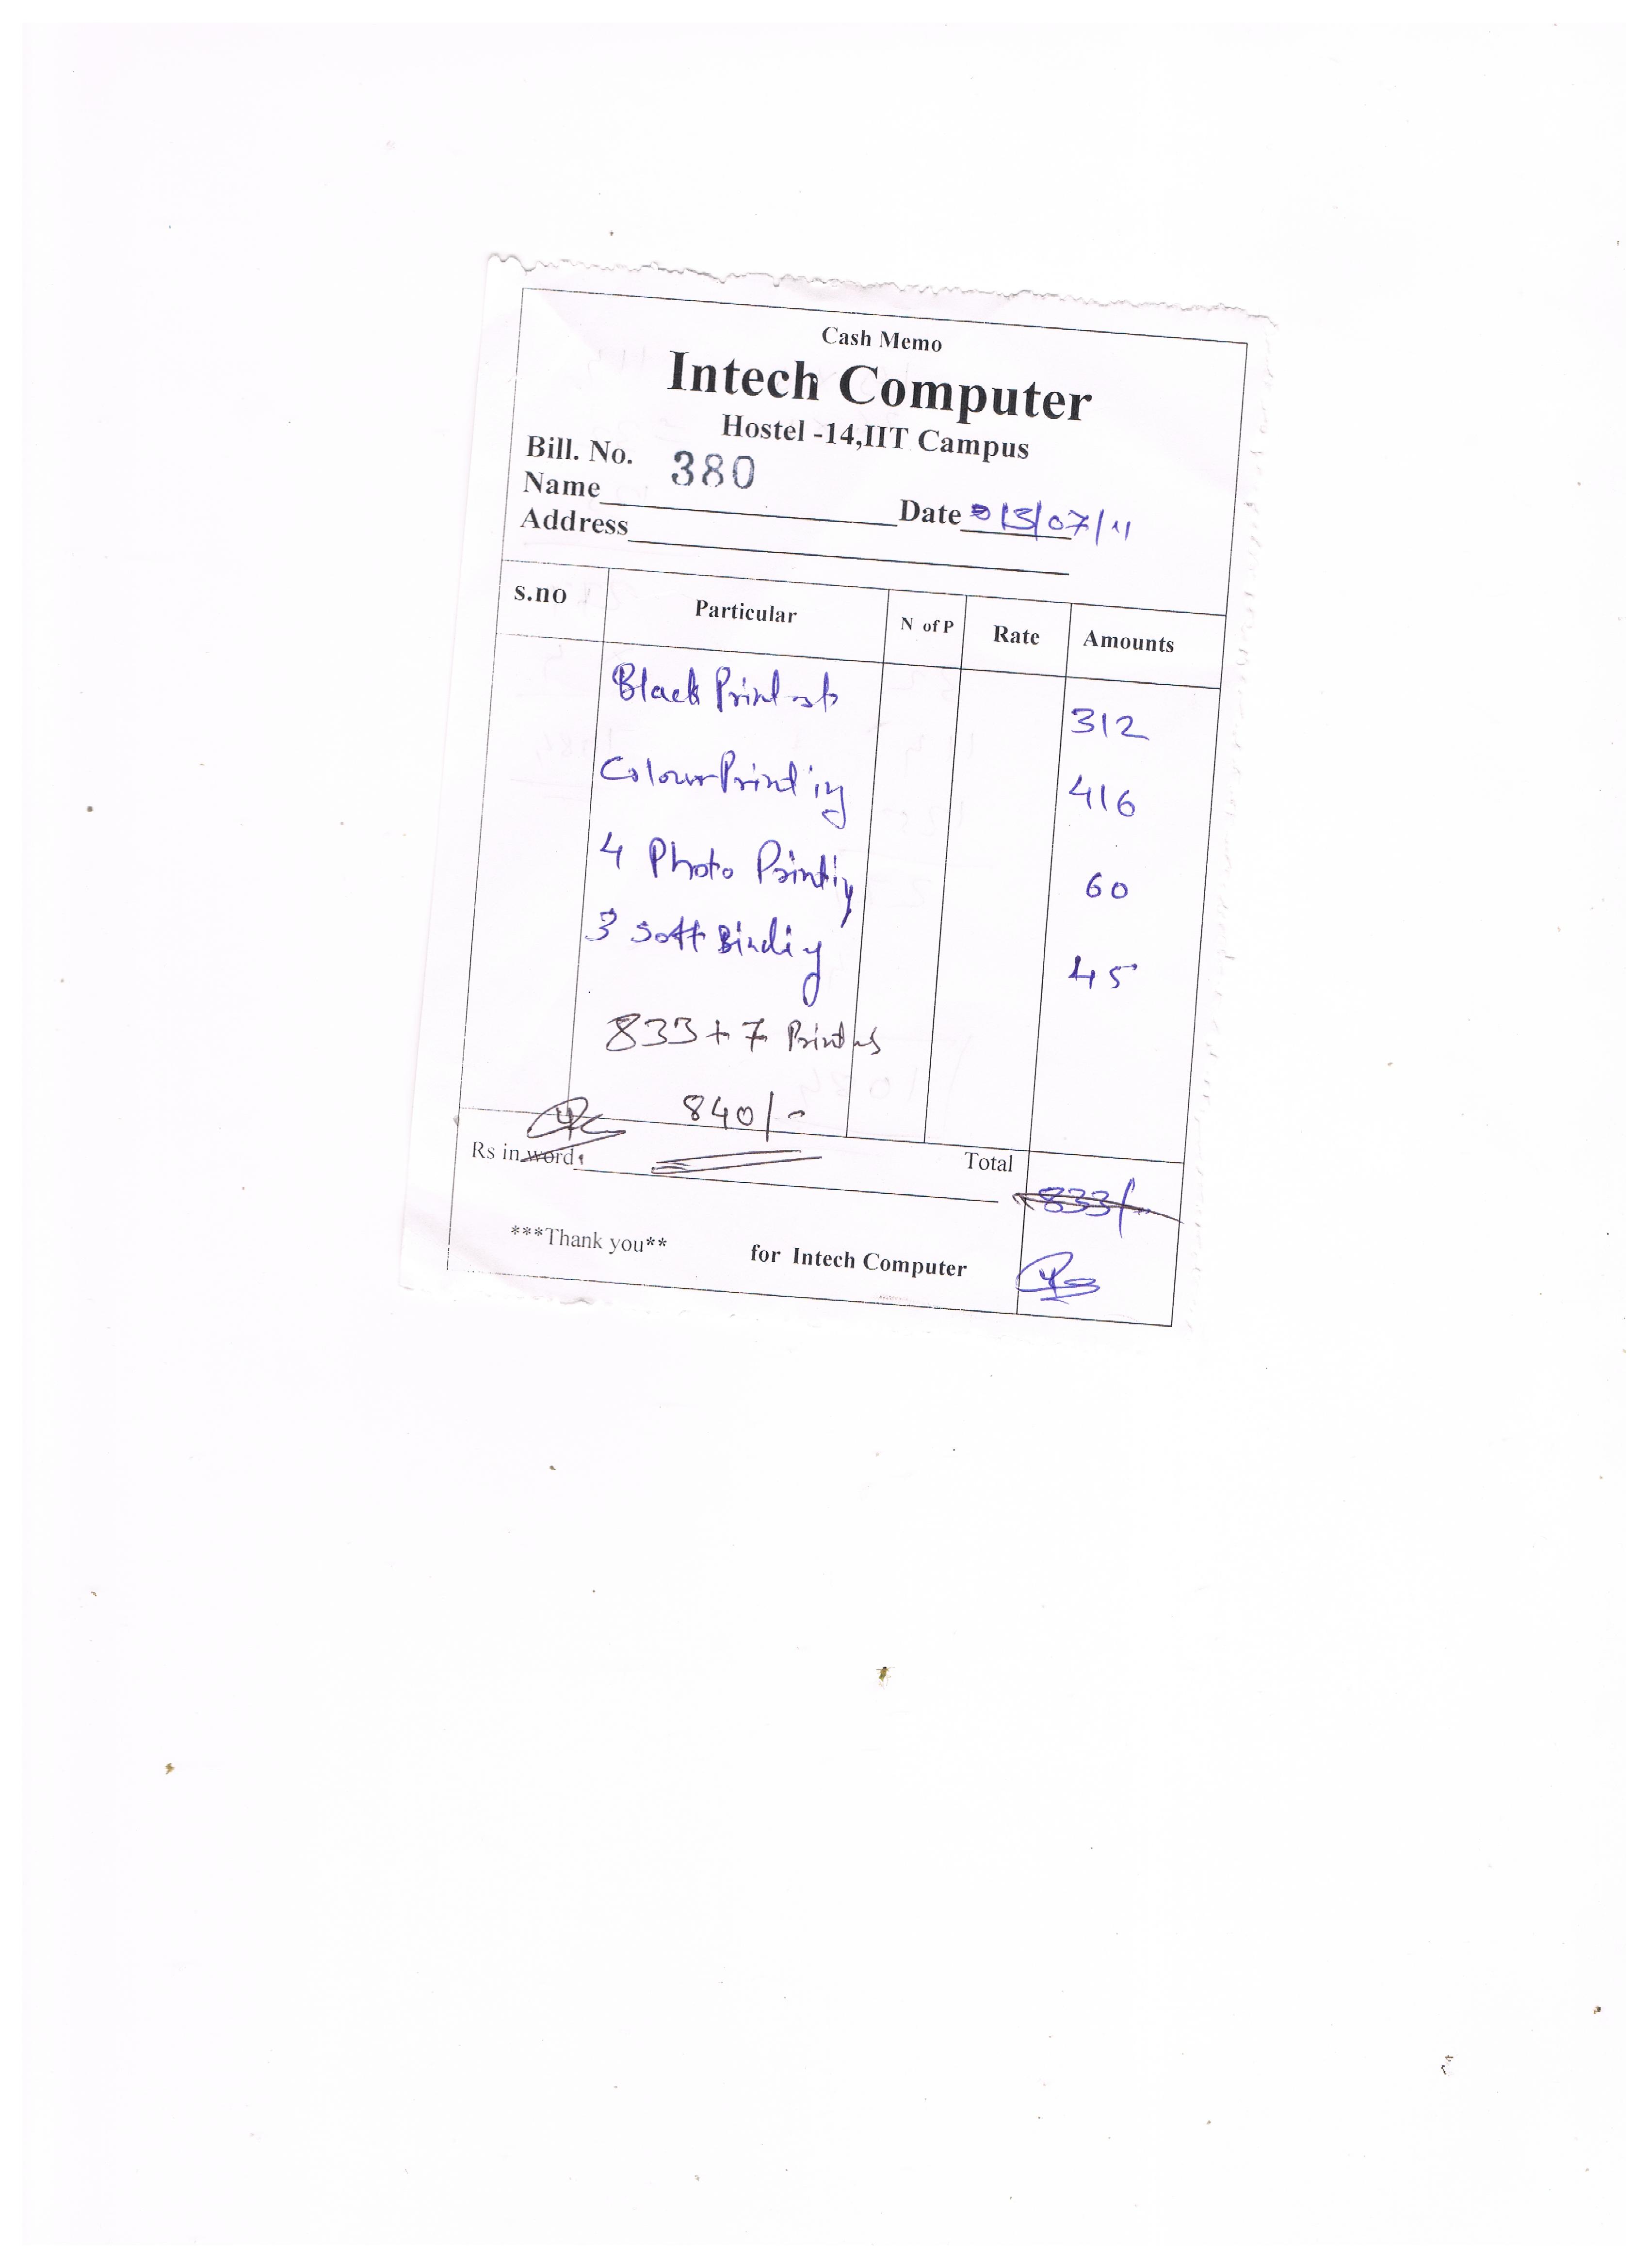 Cash Memo
Intech Computer
Hostel -14,IIT Campus
Bill. No. 380
Name Date 13/07/11
Address
s.no Particular N of P Rate Amounts
Black Print 312
Colour Printing 416
4 Photo Printing 60
3 Soft Binding 45
833 + 7
840/-
Rs in word
Total
833/-
***Thank you** for Intech Computer